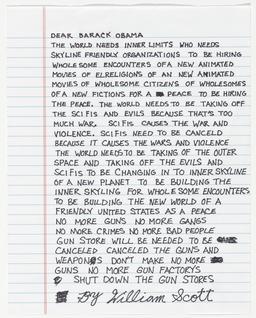 DEAR BARACK OBAMA
THE WORLD NEEDS INNER LIMITS WHO NEEDS
SKYLINE FRIENDLY ORGANIZATIONS TO BE HIRING
WHOLESOME ENCOUNTERS OF A NEW ANIMATED
MOVIES OF ELRELIGIONS OF AN NEW ANIMATED
MOVIES OF WHOLESOME CITIZENS OF WHOLESOMES
OF A NEW FICTIONS FOR A PEACE TO BE HIRING
THE PEACE. THE WORLD NEEDS TO BE TAKING OFF
THE SCIFIS AND EVILS BECAUSE THAT'S TOO
MUCH WAR. SCIFIS CAUSES THE WAR AND
VIOLENCE. SCIFIS NEED TO BE CANCELD
BECAUSE IT CAUSES THE WARS AND VIOLENCE
THE WORLD NEEDS TO BE TAKING OF THE OUTER
SPACE AND TAKING OFF THE EVILS AND
SCIFIS TO BE CHANGING IN TO INNER SKYLINE
OF A NEW PLANET TO BE BUILDING THE
INNER SKYLING FOR WHOLESOME ENCOUNTERS
TO BE BUILDING THE NEW WORLD OF A
FRIENDLY UNITED STATES AS A PEACE
NO MORE GUNS NO MORE GANGS
NO MORE CRIMES NO MORE BAD PEOPLE
GUN STORE WILL BE NEEDED TO BE
CANCELED CANCELED THE GUNS AND
WEAPONS DON'T MAKE NO MORE
GUNS NO MORE GUN FACTORYS
SHUT DOWN THE GUN STORES
By William Scott